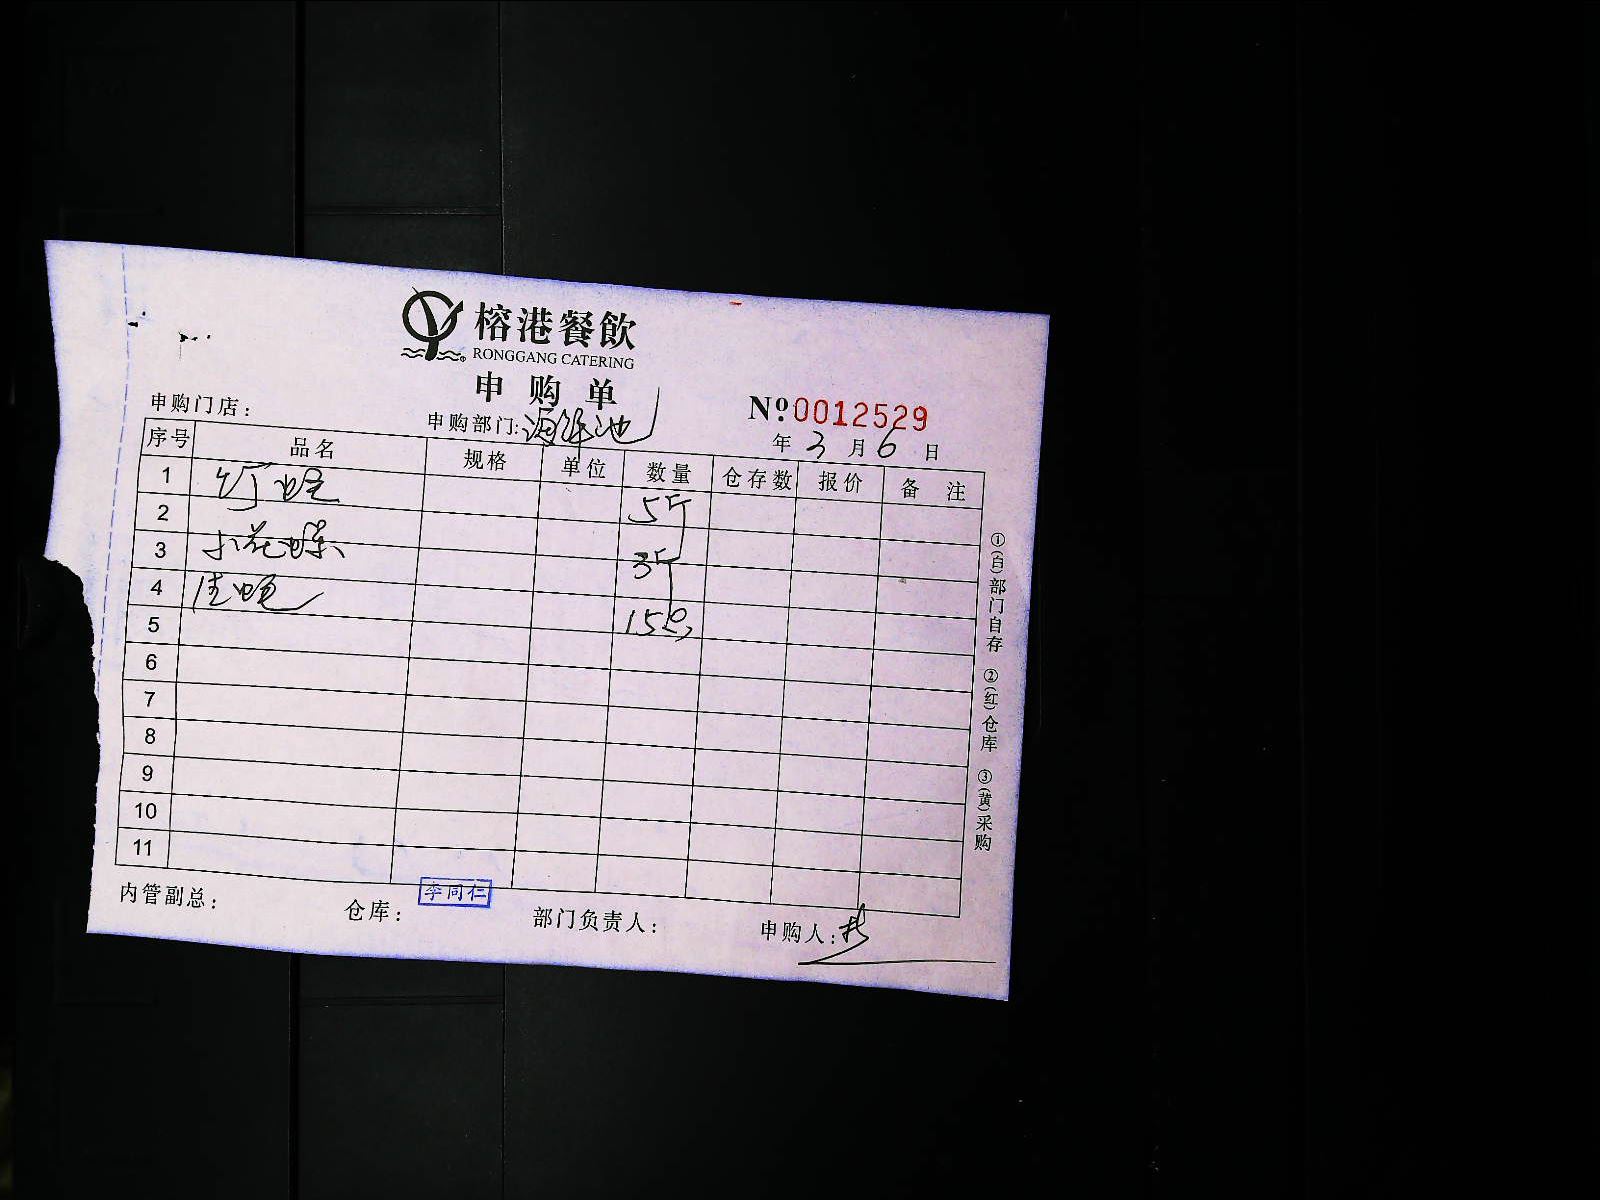 榕港餐飲
RONGGANG CATERING
申购单
申购门店：
申购部门：海鲜池
№0012529
年 3 月 6 日
序号 品名 规格 单位 数量 仓存数 报价 备注
1
2 5斤
3 小花螺 3斤
4
5 15只
6
7
8
9
10
11
①(白)部门自存 ②(红)仓库 ③(黄)采购
内管副总： 仓库： 李同仁 部门负责人： 申购人：